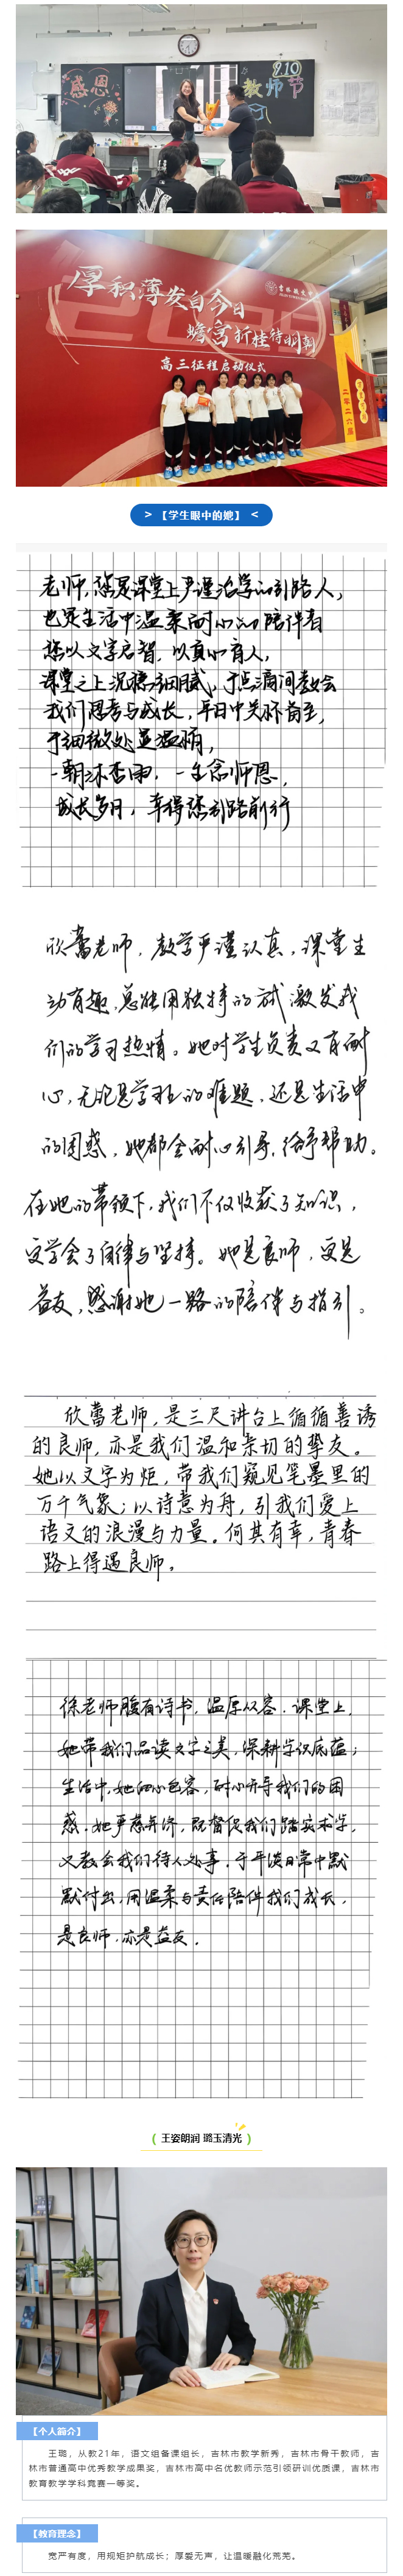 感恩
9.10
教师节
厚积薄发自今日
蟾宫折桂待明朝
高三征程启动仪式
> 【学生眼中的她】 <
老师，您是课堂上严谨治学的引路人，
也是生活中温柔耐心的陪伴者
您以文字启智，以真心育人，
课堂之上沉稳细腻，于点滴间教会
我们思考与成长，平日中关怀备至，
于细微处显温情，
一朝沐杏雨，一生念师恩，
成长岁月，幸得您引路前行
欣蕾老师，教学严谨认真，课堂生
动有趣，总能用独特的方式激发我
们的学习热情。她对学生负责又有耐
心，无论是学习上的难题，还是生活中
的困惑，她都会耐心引导，给予帮助。
在她的带领下，我们不仅收获了知识，
更学会了自律与坚持。她是良师，更是
益友，感谢她一路的陪伴与指引。
欣蕾老师，是三尺讲台上循循善诱
的良师，亦是我们温和亲切的挚友。
她以文字为炬，带我们窥见笔墨里的
万千气象；以诗意为舟，引我们爱上
语文的浪漫与力量。何其有幸，青春
路上得遇良师。
徐老师腹有诗书，温厚从容．课堂上，
她带我们品读文字之美，深耕学识底蕴；
生活中，她细心包容，耐心开导我们的困
惑．她严慈并济，既督促我们踏实求学，
又教会我们待人处事．于平淡日常中默
默付出，用温柔与责任陪伴我们成长，
是良师，亦是益友．
( 王姿朗润 璐玉清光 )
【个人简介】
王璐，从教21年，语文组备课组长，吉林市教学新秀，吉林市骨干教师，吉
林市普通高中优秀教学成果奖，吉林市高中名优教师示范引领研训优质课，吉林市
教育教学学科竞赛一等奖。
【教育理念】
宽严有度，用规矩护航成长；厚爱无声，让温暖融化荒芜。